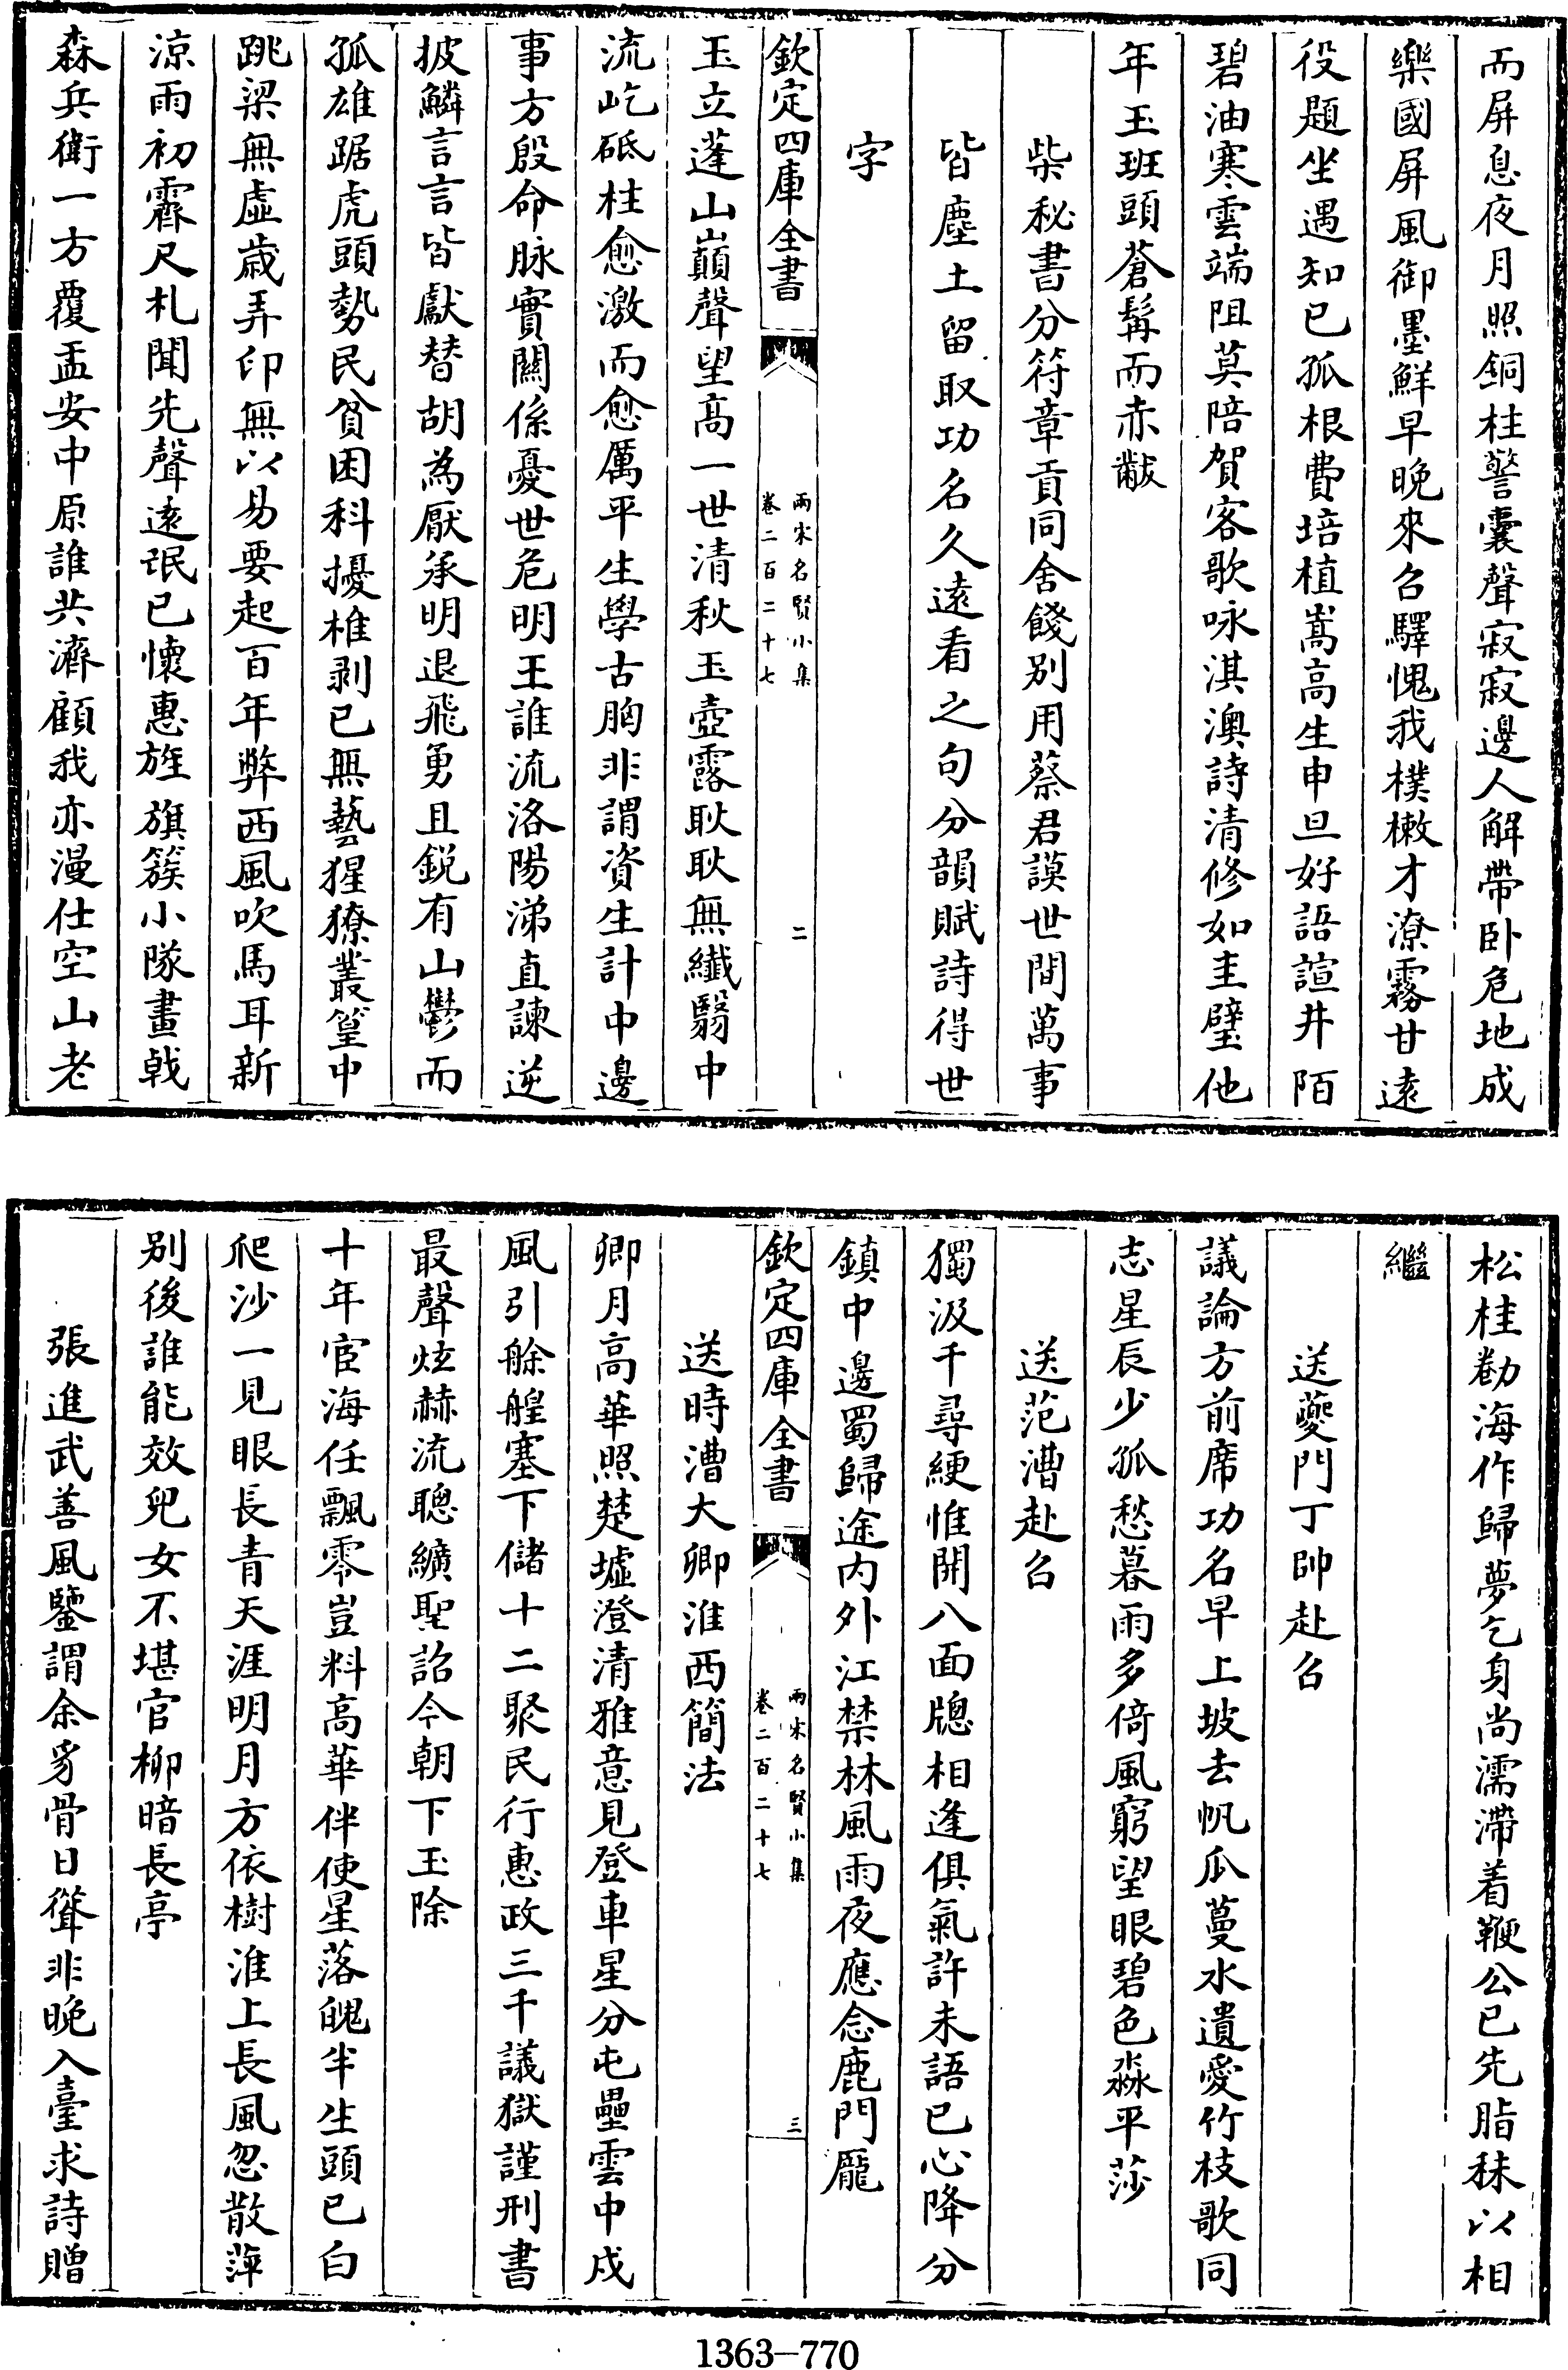 而屏息夜月照銅柱警囊聲寂寂邊人解帶卧危地成
樂國屏風御墨鮮早晚來召驛愧我樸樕才潦霧甘逺
役題坐遇知已孤根費培植嵩高生申旦好語諠井陌
碧油寒雲端阻莫陪賀客歌咏淇澳詩清修如圭璧他
年玉班頭蒼髯而赤黻
柴秘書分符章貢同舍餞别用蔡君謨世間萬事
皆塵土留取功名久逺看之句分韻賦詩得世
字
欽定四庫全書
兩宋名賢小集
卷二百二十七
二
玉立蓬山巔聲望高一世清秋玉壺露耿耿無纖翳中
流屹砥柱愈激而愈厲平生學古胸非謂資生計中邊
事方殷命脉實關係憂世危明王誰流洛陽涕直諫逆
披鱗言言皆獻替胡為厭承明退飛勇且鋭有山鬱而
孤雄踞虎頭勢民貧困科擾椎剥已無藝猩獠叢篁中
跳梁無虚歳弄印無以易要起百年弊西風吹馬耳新
涼雨初霽尺札聞先聲逺氓已懷惠旌旗簇小隊畫戟
森兵衛一方覆盂安中原誰共濟顧我亦漫仕空山老
松桂勸海作歸夢乞身尚濡滯着鞭公已先脂秣以相
繼
送夔門丁帥赴召
議論方前席功名早上坡去帆瓜蔓水遺愛竹枝歌同
志星辰少孤愁暮雨多倚風窮望眼碧色淼平莎
送范漕赴召
獨汲千尋綆惟開八面牎相逢俱氣許未語已心降分
鎮中邊蜀歸途内外江禁林風雨夜應念鹿門龎
欽定四庫全書
兩宋名賢小集
卷二百二十七
三
送時漕大卿淮西簡法
卿月高華照楚墟澄清雅意見登車星分屯壘雲中戍
風引艅艎塞下儲十二聚民行惠政三千議獄謹刑書
最聲炫赫流聰纊聖詔今朝下玉除
十年宦海任飄零豈料高華伴使星落魄半生頭已白
爬沙一見眼長青天涯明月方依樹淮上長風忽散萍
别後誰能效兒女不堪官柳暗長亭
張進武善風鑒謂余豸骨日聳非晚入臺求詩贈
1363-770